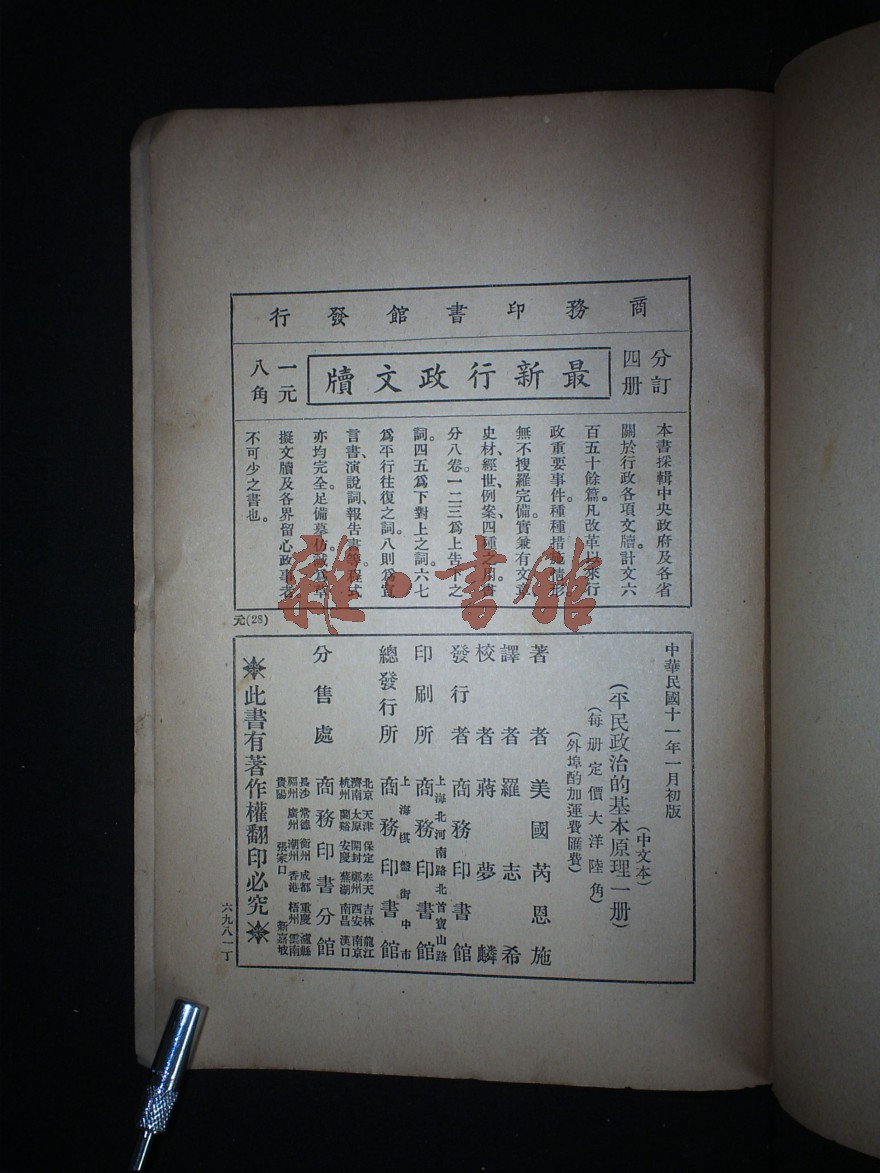 商務印書館發行
分訂四册
最新行政文牘
一元八角
本書採輯中央政府及各省
關於行政各項文牘計文六
百五十餘篇。凡改革以來行
政重要事件。種種措施情形
無不搜羅完備。實兼有文章、
史材、經世、例案、四種之用。書
分八卷。一二三爲上告下之
詞。四五爲下對上之詞。六七
爲平行往復之詞。八則爲宣
言書、演說詞、報告書等。程式
亦均完全。足備摹仿。誠爲草
擬文牘及各界留心政事者
不可少之書也。
元(28)
雜·書館
中華民國十一年一月初版
(中文本)
(平民政治的基本原理一册)
(每册定價大洋陸角)
(外埠酌加運費匯費)
著者 美國芮恩施
譯者 羅志希
校者 蔣夢麟
發行者 商務印書館
上海北河南路北首寶山路
印刷所 商務印書館
上海棋盤街中市
總發行所 商務印書館
北京 天津 保定 奉天 吉林 龍江
濟南 太原 開封 鄭州 西安 南京
杭州 蘭谿 安慶 蕪湖 南昌 漢口
分售處 商務印書分館
長沙 常德 衡州 成都 重慶 瀘縣
福州 廣州 潮州 香港 梧州 雲南
貴陽 張家口 新嘉坡
此書有著作權翻印必究
六九八一丁